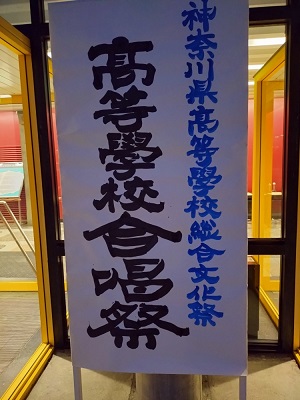 神奈川県高等學校総合文化祭
高等學校合唱祭